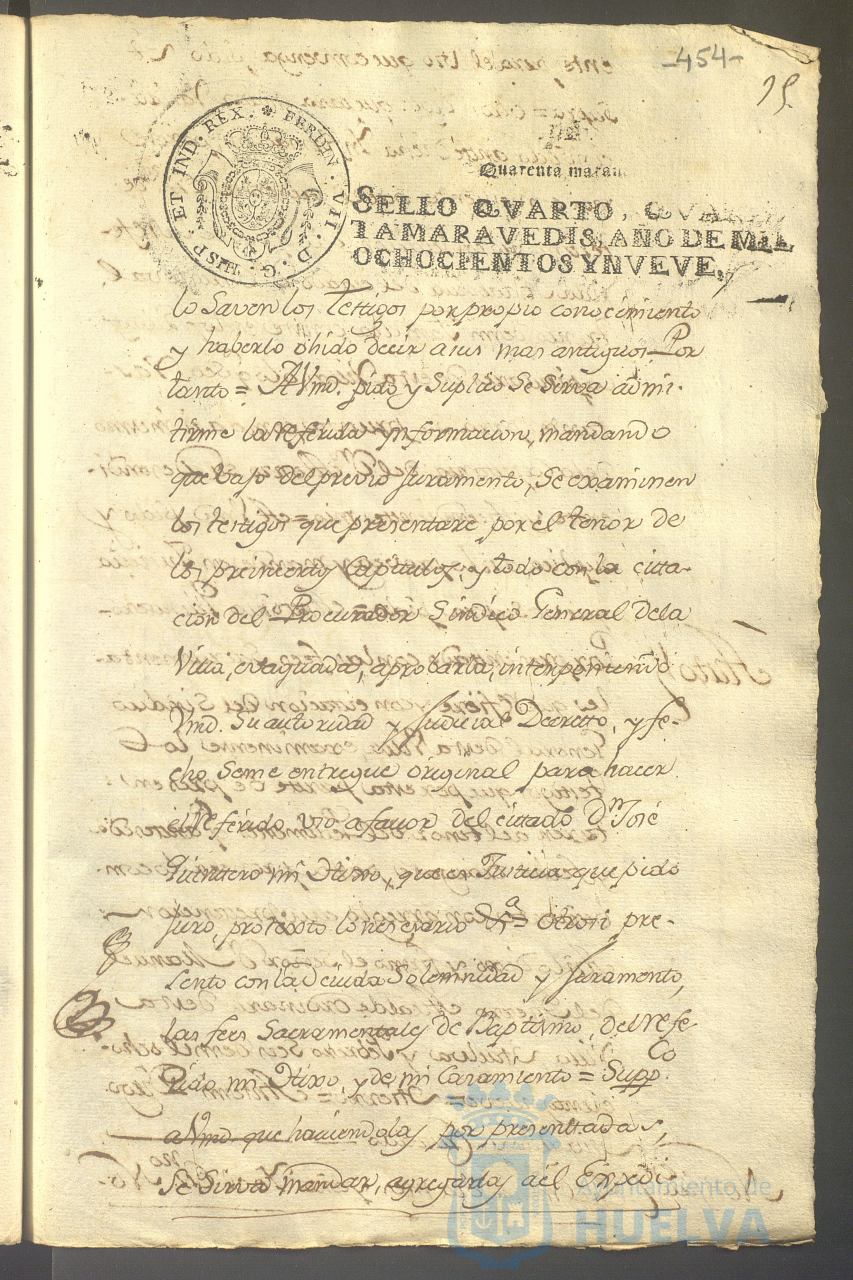 -454-
15.
FERDIN. VII. D. G. HISP. ET IND. REX.
Quarenta marav
SELLO QVARTO, QVA
TAMARAVEDIS, AÑO DE MIL
OCHOCIENTOS Y NVEVE.
lo Saven los Testigos por propio conocimiento
y haberlo ohido decir a sus mas antiguos. Por
tanto = A Vmd. pido y Suplico Se Sirva admi-
tirme la referida ynformacion, mandando
que bajo del previo Juramento, Se examinen
los testigos que presentare por el tenor de
los preincertos Capitulos, y todo con la cita-
cion del Procurador Sindico General dela
Villa, evaquada, aprobarla, interponiendo
Vmd. Su autoridad y Judicial Decreto, y fe-
cho Seme entregue original para hacer
el referido uso a favor del citado Dn. José
Quintero mi Hixo, que es Justicia que pido
Juro, protexto lo necesario &a = Otrosi pre-
sento con la devida Solemnidad y Juramento,
las fees Sacramentales de Baptismo, del refe
rido mi Hixo, y de mi Casamiento = Suppco.
a Vmd que haciendolas por presentadas,
Se Sirva mandar, agregarlas a el Expedi-
Ayuntamiento de
HUELVA